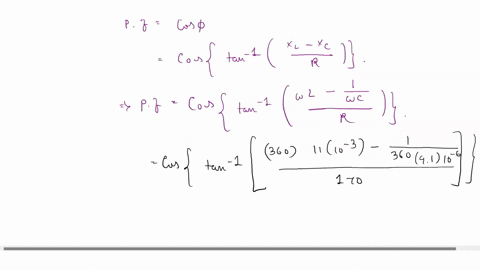 P.f = Cosϕ
= Cos{ tan⁻¹ ( (X_L − X_C) / R ) }.
⇒ P.f = Cos{ tan⁻¹ ( (ωL − 1/ωC) / R ) }.
= Cos{ tan⁻¹ [ ( (360) 11(10⁻³) − 1/(360(4.1)10⁻⁶) ) / 170 ] }